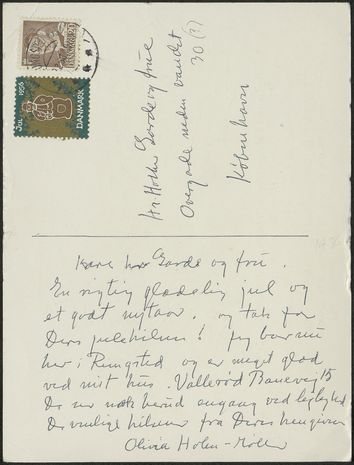 JUL 1956
DANMARK
Hr Holten Garde og frue
Overgade neden vandet
30 (?)
København
Kære hr Garde og frue.
En rigtig glædelig jul og
et godt nytaar, og tak for
Deres julehilsen! Jeg bor nu
her i Rungsted og er meget glad
ved mit hus. Vallerød Banevej 15
De ser nok herud engang ved lejlighed
De venlige hilsner fra Deres hengivne
Olivia Holm-Møller